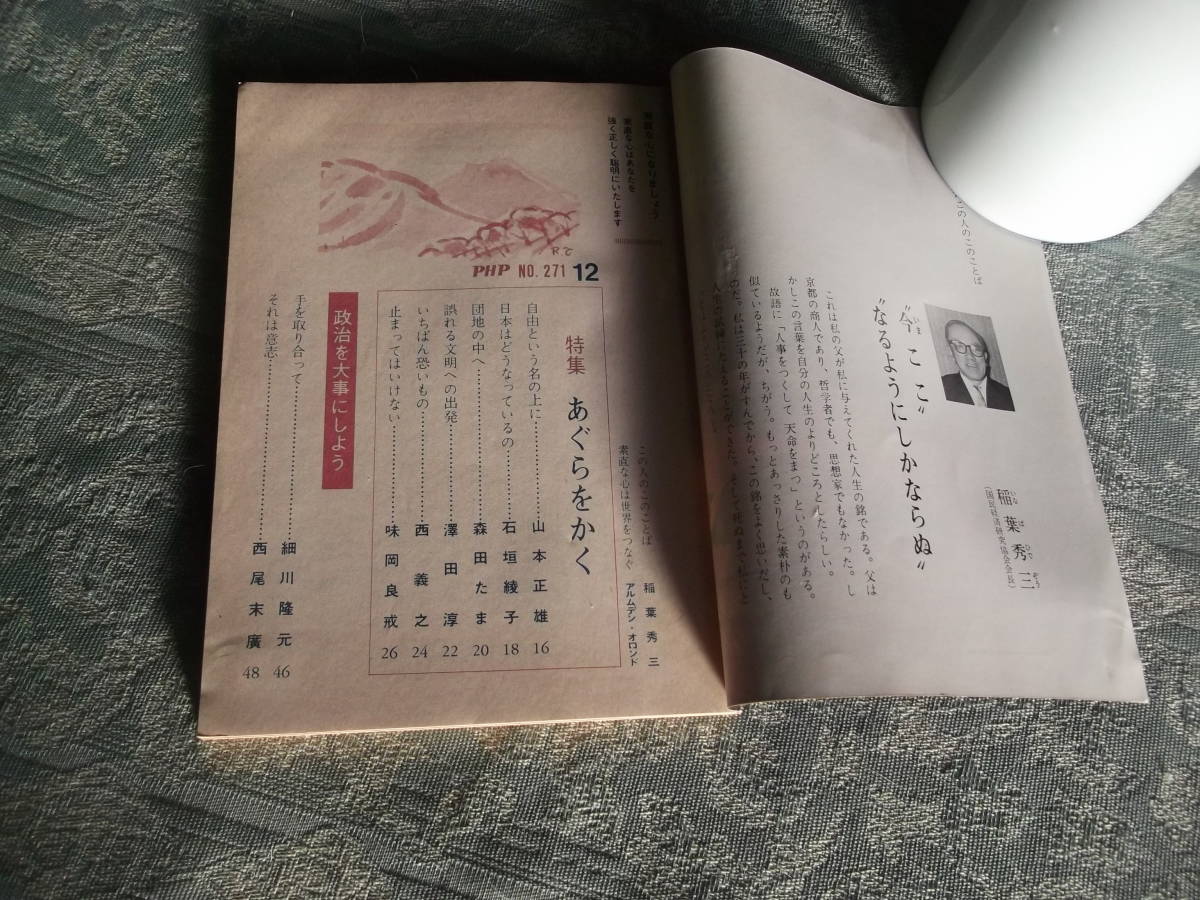 この人のこのことば
"今ここ"
"なるようにしかならぬ"
稲葉秀三
いなばひでぞう
(国民経済研究協会会長)
これは私の父が私に与えてくれた人生の銘である。父は
京都の商人であり、哲学者でも、思想家でもなかった。し
かしこの言葉を自分の人生のよりどころとしたらしい。
故語に「人事をつくして天命をまつ」というのがある。
似ているようだが、ちがう。もっとあっさりした素朴のも
のだ。私は三十の年がすんでから、この銘をよく思いだし、
素直な心になりましょう
素直な心はあなたを
強く正しく聡明にいたします
R
PHP NO. 271 12
この人のこのことば 稲葉秀三
素直な心は世界をつなぐ アルムデン・オロンド
特集 あぐらをかく
自由という名の上に 山本正雄 16
日本はどうなっているの 石垣綾子 18
団地の中へ 森田たま 20
誤れる文明への出発 澤田淳 22
いちばん恐いもの 西義之 24
止まってはいけない 味岡良戒 26
政治を大事にしよう
手を取り合って 細川隆元 46
それは意志 西尾末廣 48